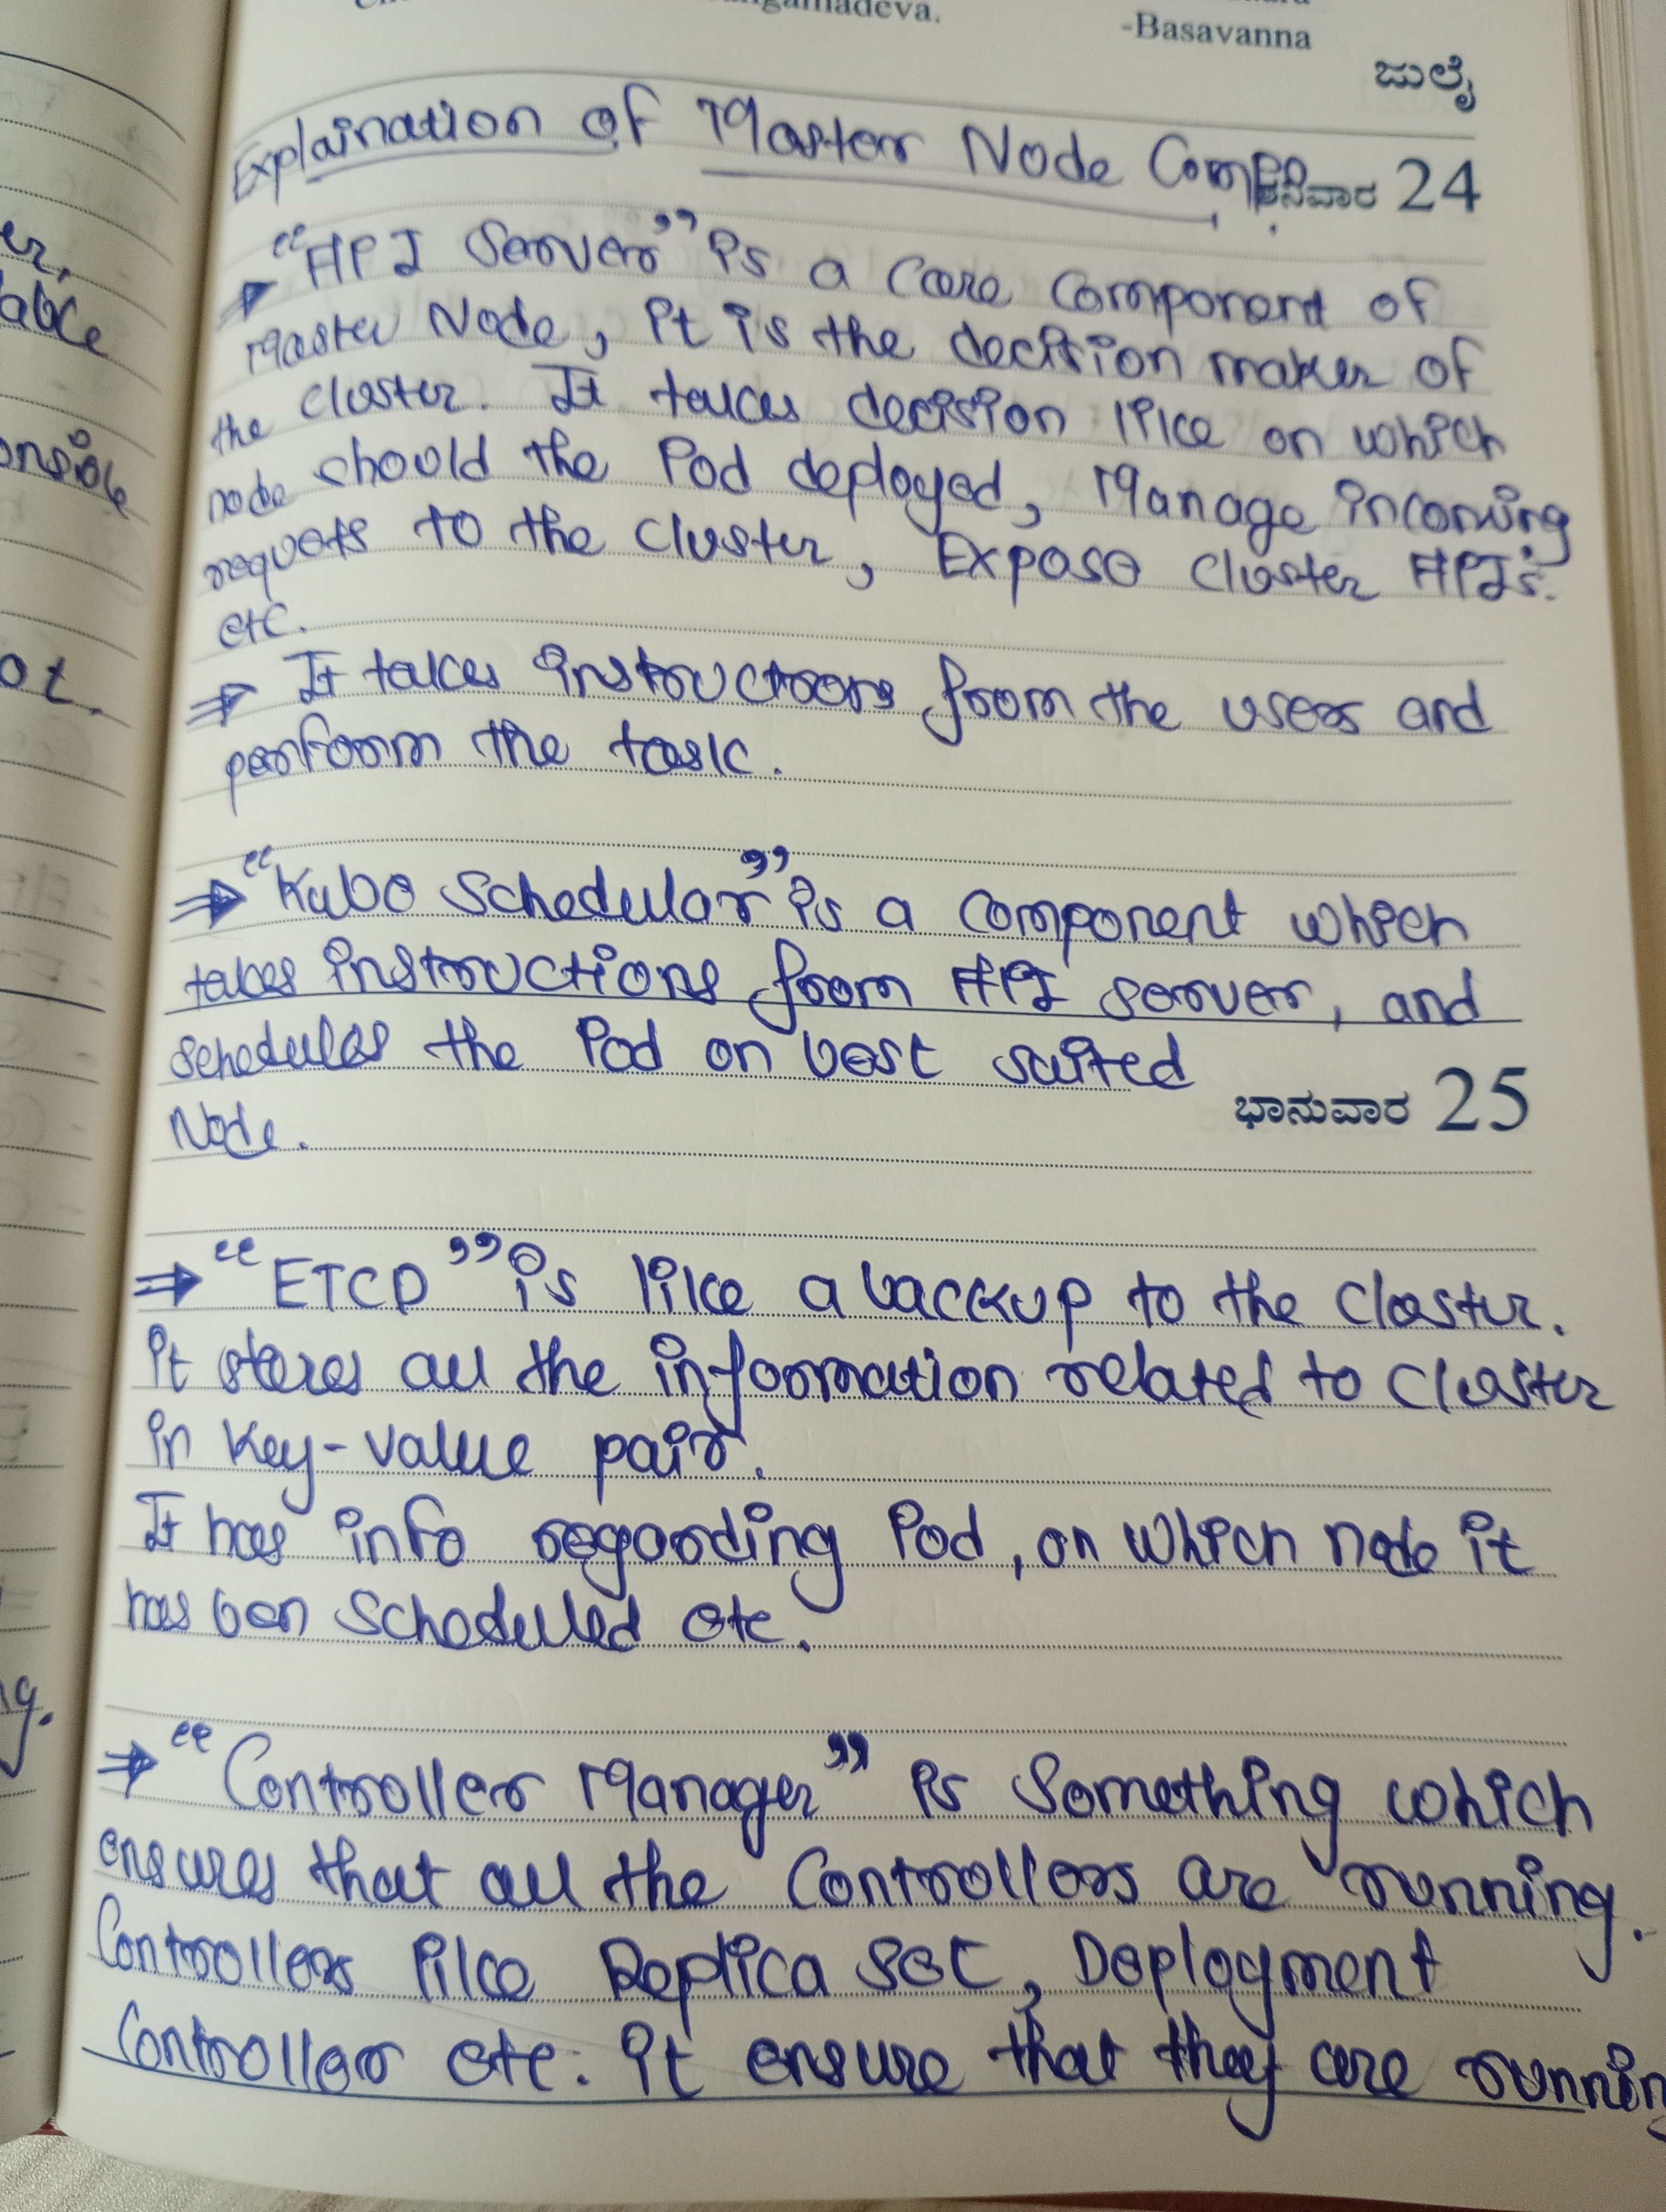 angamadeva.
-Basavanna
ಜುಲೈ
Explaination of Master Node Comp
ಶನಿವಾರ 24
⇒ "API Server" is a core component of
Master Node, it is the decision maker of
the cluster. It takes decision like on which
node should the Pod deployed, Manage incoming
requets to the cluster, Expose cluster API's.
etc.
⇒ It takes instructions from the user and
perform the task.
⇒ "Kube Schedular" is a component which
takes instructions from API server, and
schedules the Pod on best suited
Node.
ಭಾನುವಾರ 25
⇒ "ETCD" is like a backup to the cluster.
it stores all the information related to cluster
in key-value pair.
It has info regarding Pod, on which node it
has ben scheduled etc.
⇒ "Controller Manager" is something which
ensures that all the controllers are running.
Controllers like Replica set, Deployment
Controller etc. it ensure that they are runnin